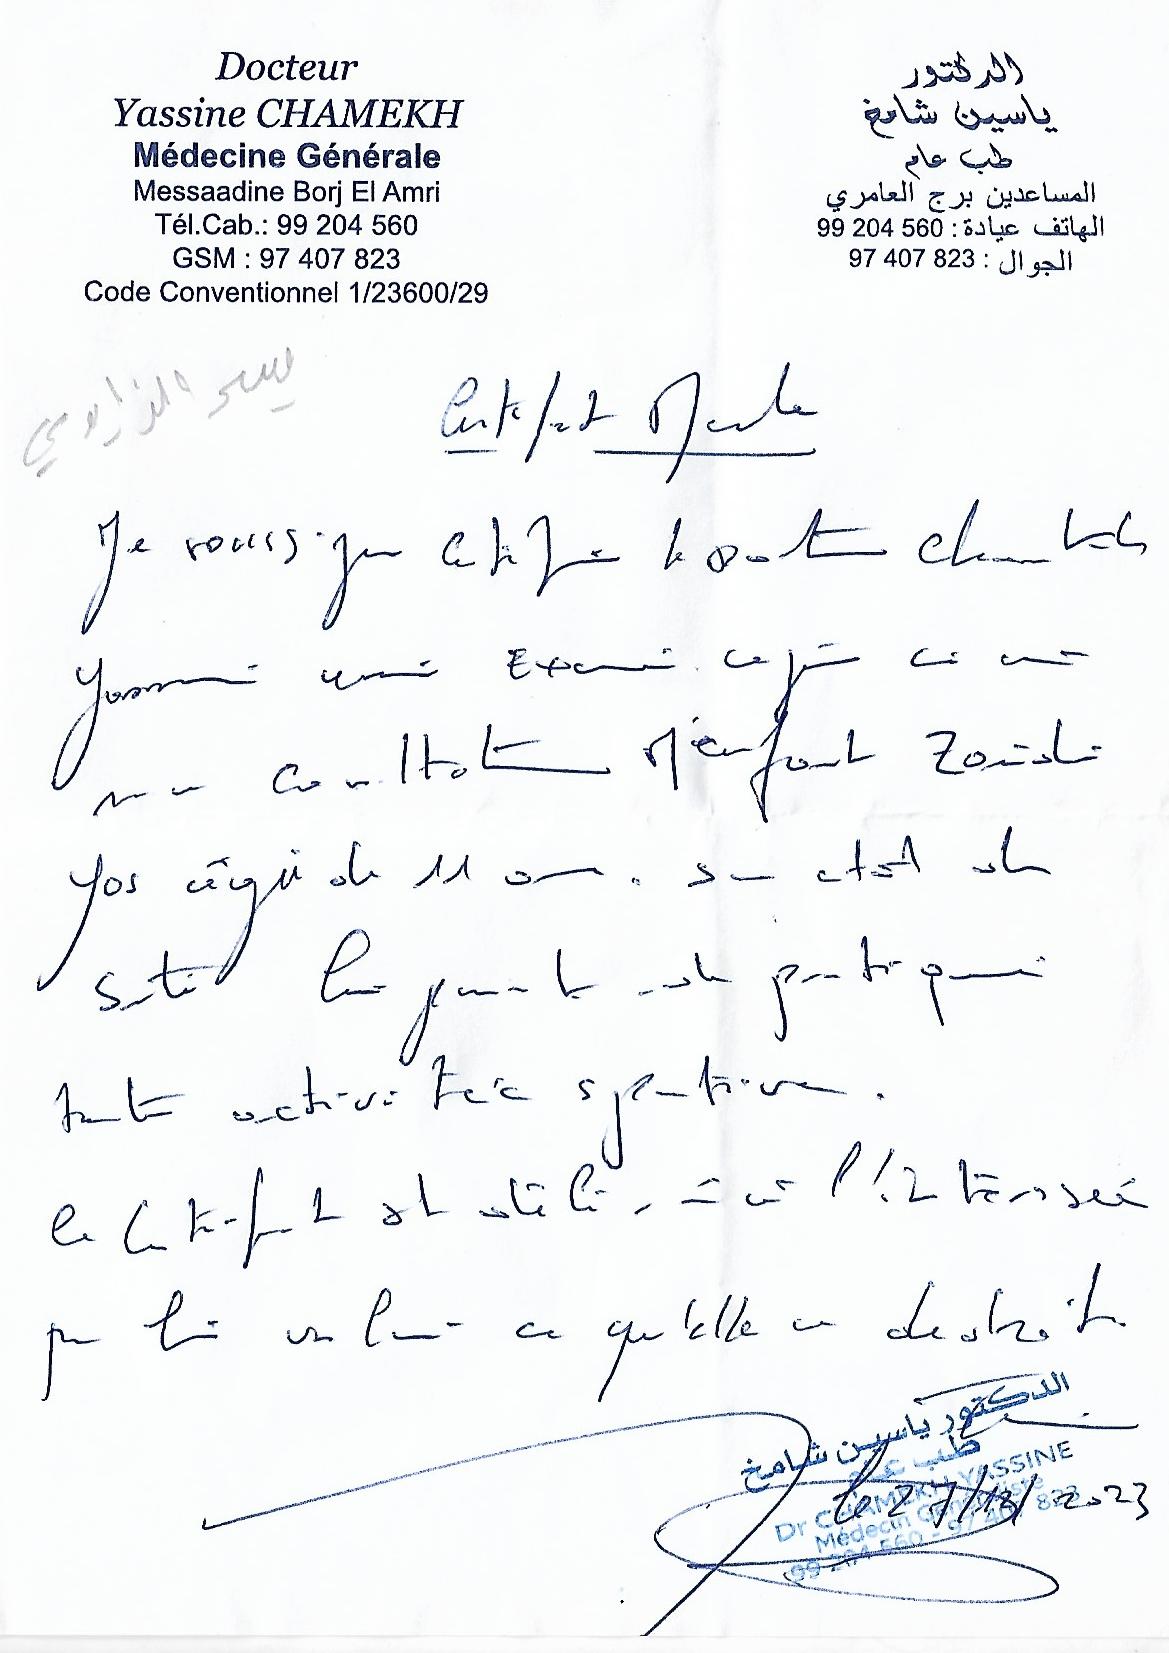 Docteur
Yassine CHAMEKH
Médecine Générale
Messaadine Borj El Amri
Tél.Cab.: 99 204 560
GSM : 97 407 823
Code Conventionnel 1/23600/29
الدكتور
ياسين شامخ
طب عام
المساعدين برج العامري
الهاتف عيادة : 560 204 99
الجوال : 823 407 97
Certificat Médical
Je soussigné certifie
Yassine avoir examiné ce jour
consultation l'enfant
âgé de 11 ans. son état de
santé lui permet de pratiquer
toute activité sportive.
Ce certificat est délivré à l'intéressé
pour lui valoir ce qu'elle de droit
الدكتور ياسين شامخ
طب عام
Dr CHAMEKH YASSINE
Médecin Généraliste
99 204 560 - 97 407 823
le 27/ / 2023